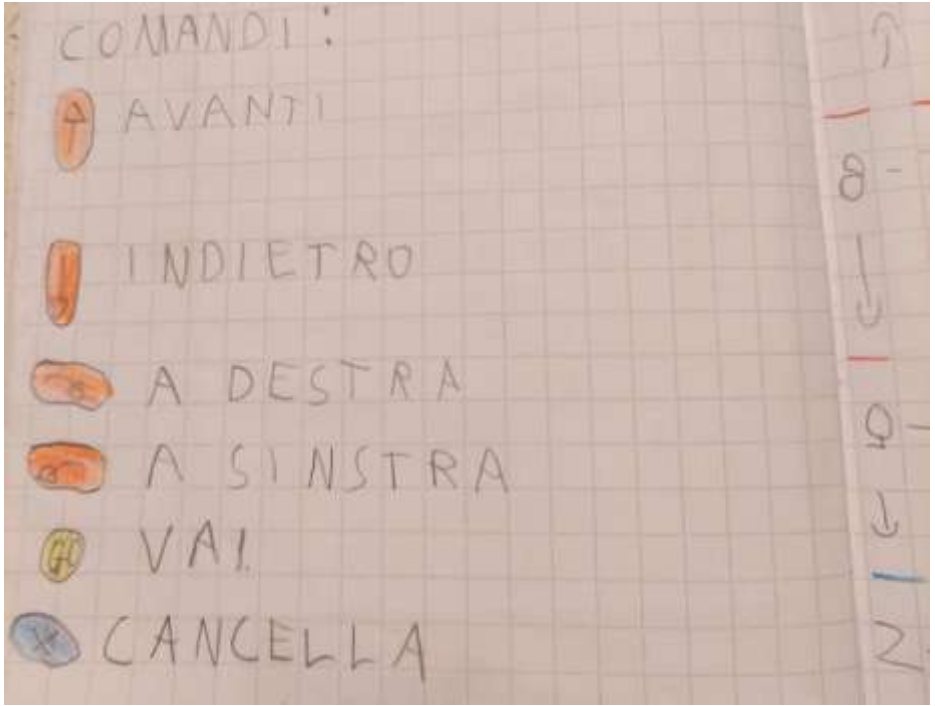 COMANDI:
AVANTI
INDIETRO
A DESTRA
A SINSTRA
GO VAI
X CANCELLA
8
2